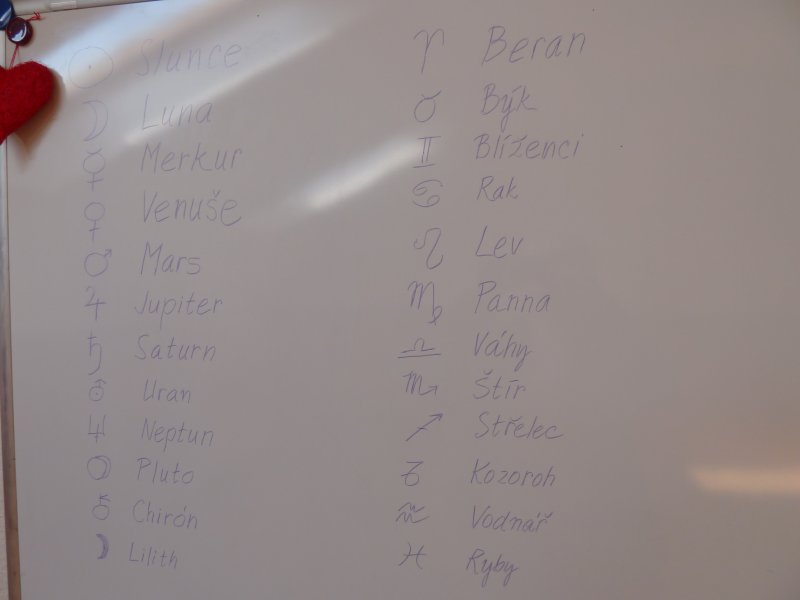 ☉ Slunce
☽ Luna
☿ Merkur
♀ Venuše
♂ Mars
♃ Jupiter
♄ Saturn
⛢ Uran
♆ Neptun
Pluto
⚷ Chirón
☽ Lilith
♈ Beran
♉ Býk
♊ Blíženci
♋ Rak
♌ Lev
♍ Panna
♎ Váhy
♏ Štír
♐ Střelec
♑ Kozoroh
♒ Vodnář
♓ Ryby